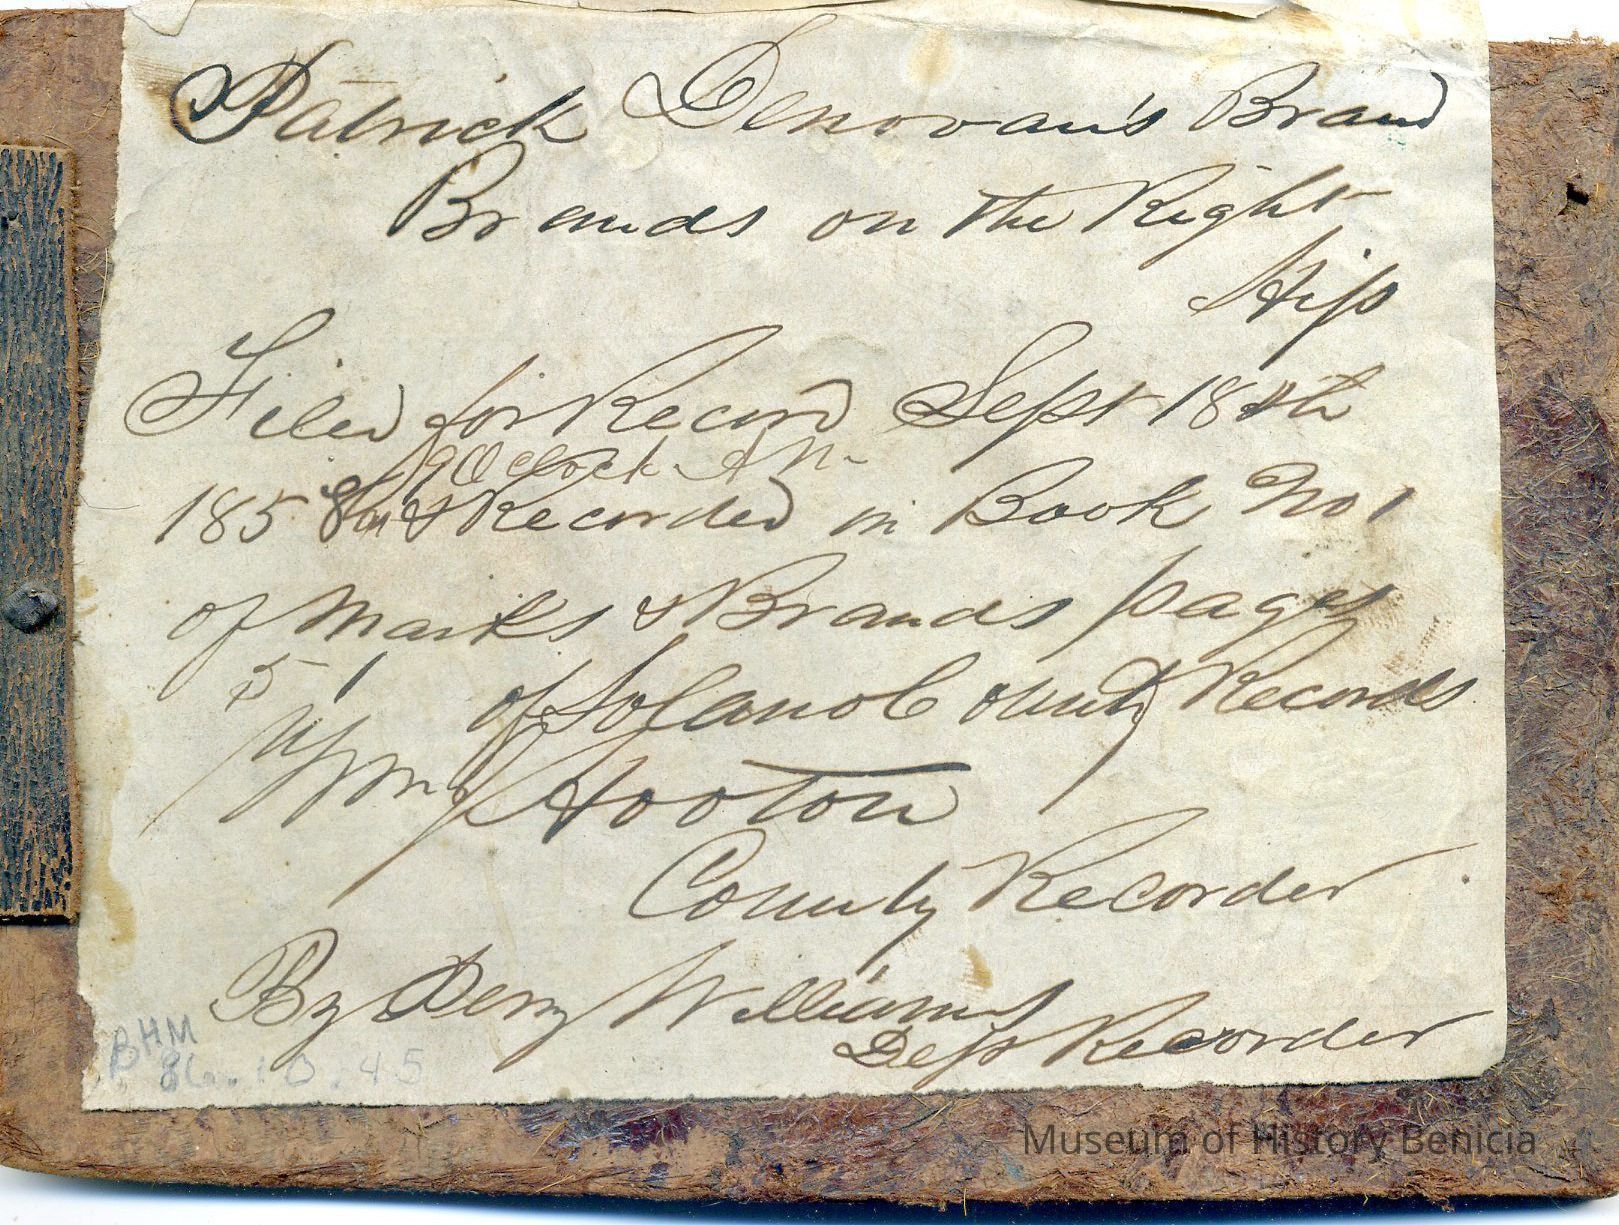 Patrick Denovan's Brand
Brands on the Right
Hip
Filed for Record Sept 18th
9 O clock A M.
1858 & Recorded in Book No 1
of Marks & Brands pages
51 of Solano County Records
Hooton
County Recorder
By Perry Williams
Dep Recorder
BHM
86.10.45
Museum of History Benicia